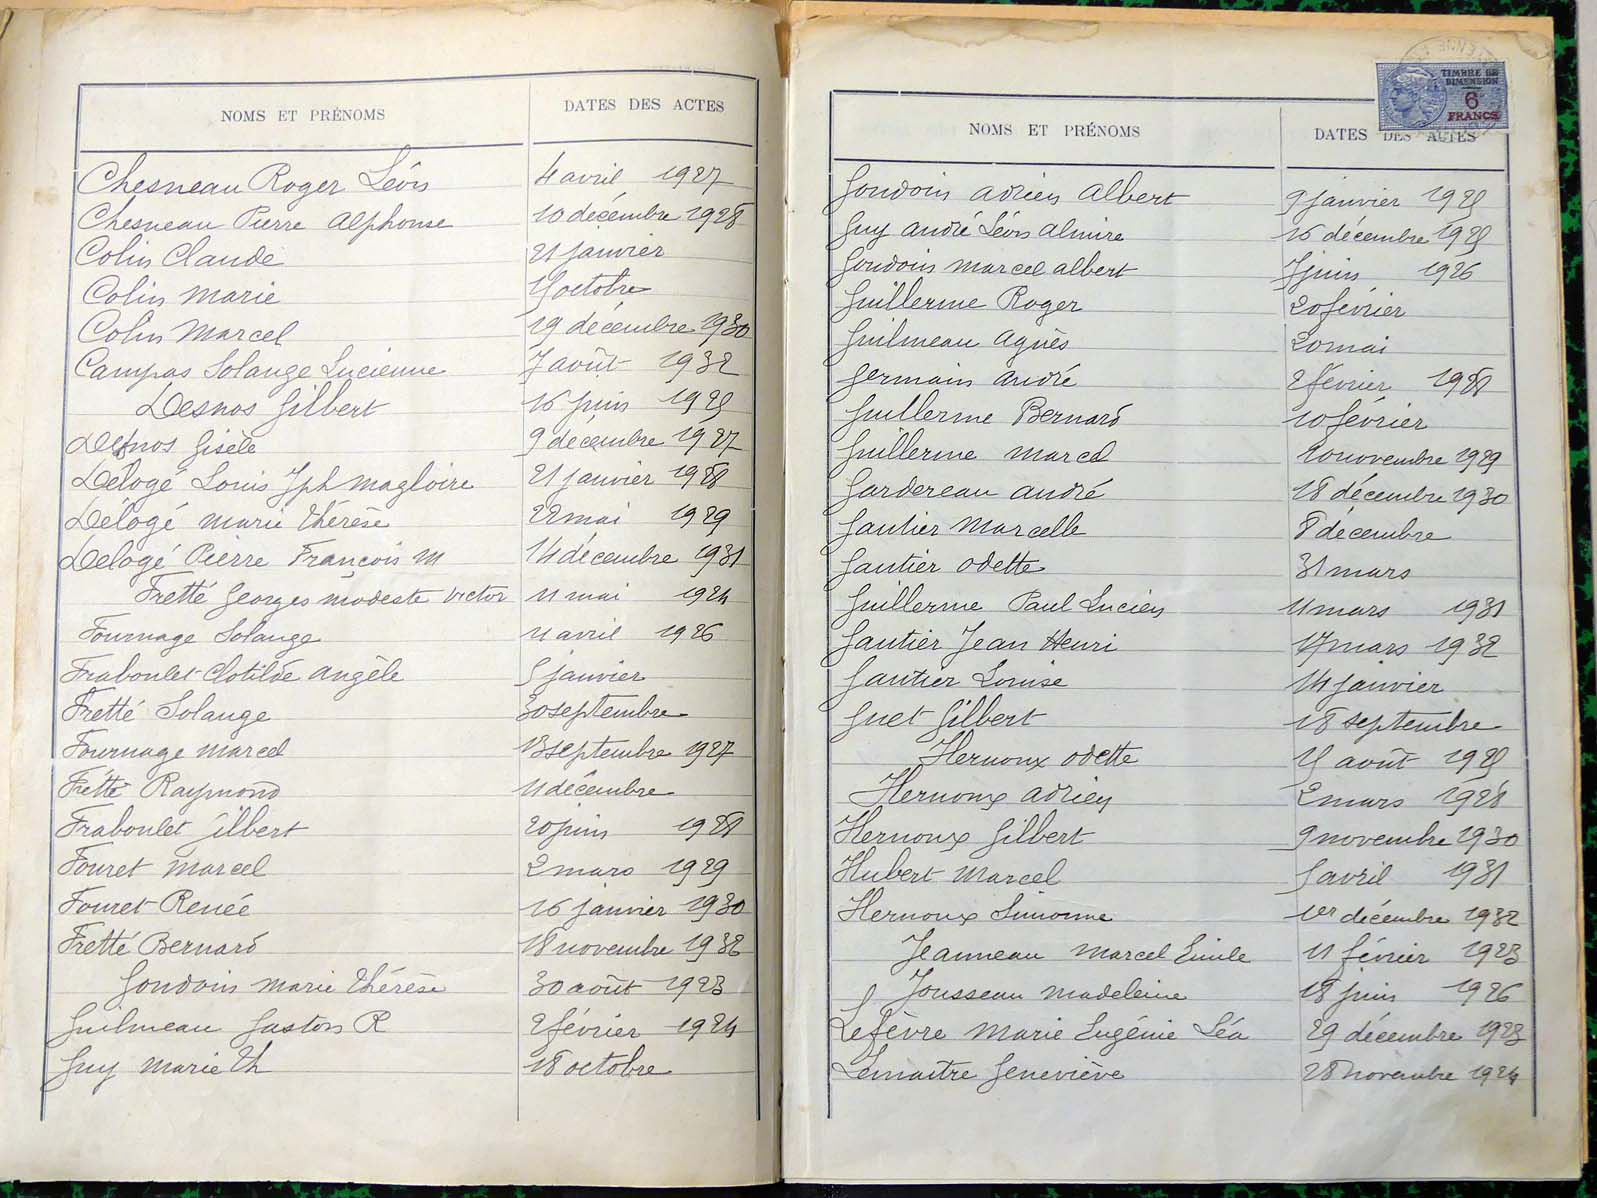 NOMS ET PRÉNOMS DATES DES ACTES
Chesneau Roger Léon 4 avril 1927
Chesneau Pierre Alphonse 10 décembre 1928
Colin Claude 21 janvier
Colin Marie octobre
Colin Marcel 19 décembre 1930
Campas Solange Lucienne 7 août 1932
Desnos Gilbert 16 juin 1925
Desnos Gisèle 9 décembre 1927
Delogé Louis Jph Magloire 21 janvier 1928
Délogé Marie Thérèse 22 mai 1929
Delogé Pierre François M 14 décembre 1931
Fretté Georges Modeste Victor 11 mai 1924
Fournage Solange 11 avril 1926
Fraboulet Clotilde Angèle 5 janvier
Fretté Solange 30 septembre
Fournage Marcel 13 septembre 1927
Fretté Raymond 11 décembre
Fraboulet Gilbert 20 juin 1928
Fouret Marcel 2 mars 1929
Fouret Renée 16 janvier 1930
Fretté Bernard 18 novembre 1932
Goudoin Marie Thérèse 30 août 1923
Guilmeau Gaston R 2 février 1924
Guy Marie Th 18 octobre
TIMBRE DE
DIMENSION
6
FRANCS
NOMS ET PRÉNOMS DATES DES ACTES
Goudoin Adrien Albert 9 janvier 1925
Guy André Léon Almire 16 décembre 1925
Goudoin Marcel Albert 7 juin 1926
Guillerme Roger 20 février
Guilmeau Agnès 20 mai
Germain André 2 février 1928
Guillerme Bernard 10 février
Guillerme Marcel 20 novembre 1929
Gardereau André 18 décembre 1930
Gautier Marcelle 8 décembre
Gautier Odette 31 mars
Guillerme Paul Lucien 11 mars 1931
Gautier Jean Henri 17 mars 1932
Gautier Louise 14 janvier
Guet Gilbert 18 septembre
Hernoux Odette 15 août 1925
Hernoux Adrien 2 mars 1928
Hernoux Gilbert 9 novembre 1930
Hubert Marcel 5 avril 1931
Hernoux Simonne 1er décembre 1932
Jeanneau Marcel Emile 11 février 1923
Jousseau Madeleine 18 juin 1926
Lefèvre Marie Eugénie Léa 29 décembre 1923
Lemaître Geneviève 28 novembre 1924